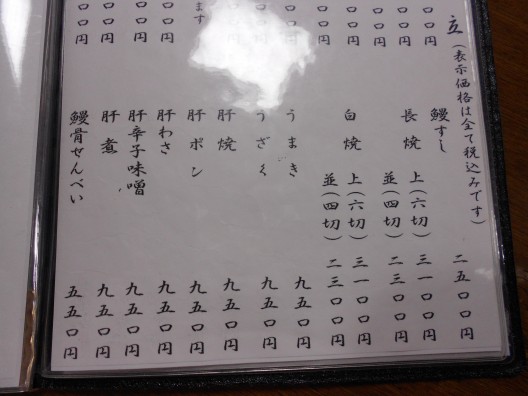 立(表示価格は全て税込みです)
鰻すし 二五〇〇円
長焼 上(六切) 三一〇〇円
並(四切) 二三〇〇円
白焼 上(六切) 三一〇〇円
並(四切) 二三〇〇円
うまき 九五〇円
うざく 九五〇円
肝焼 九五〇円
肝ポン 九五〇円
肝わさ 九五〇円
肝辛子味噌 九五〇円
肝煮 九五〇円
鰻骨せんべい 五五〇円